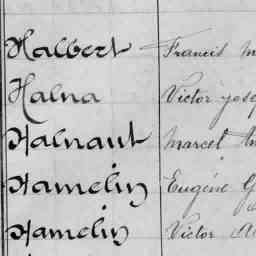 Halbert Francis
Halna Victor
Halnaut Marcel
Hamelin Eugène
Hamelin Victor